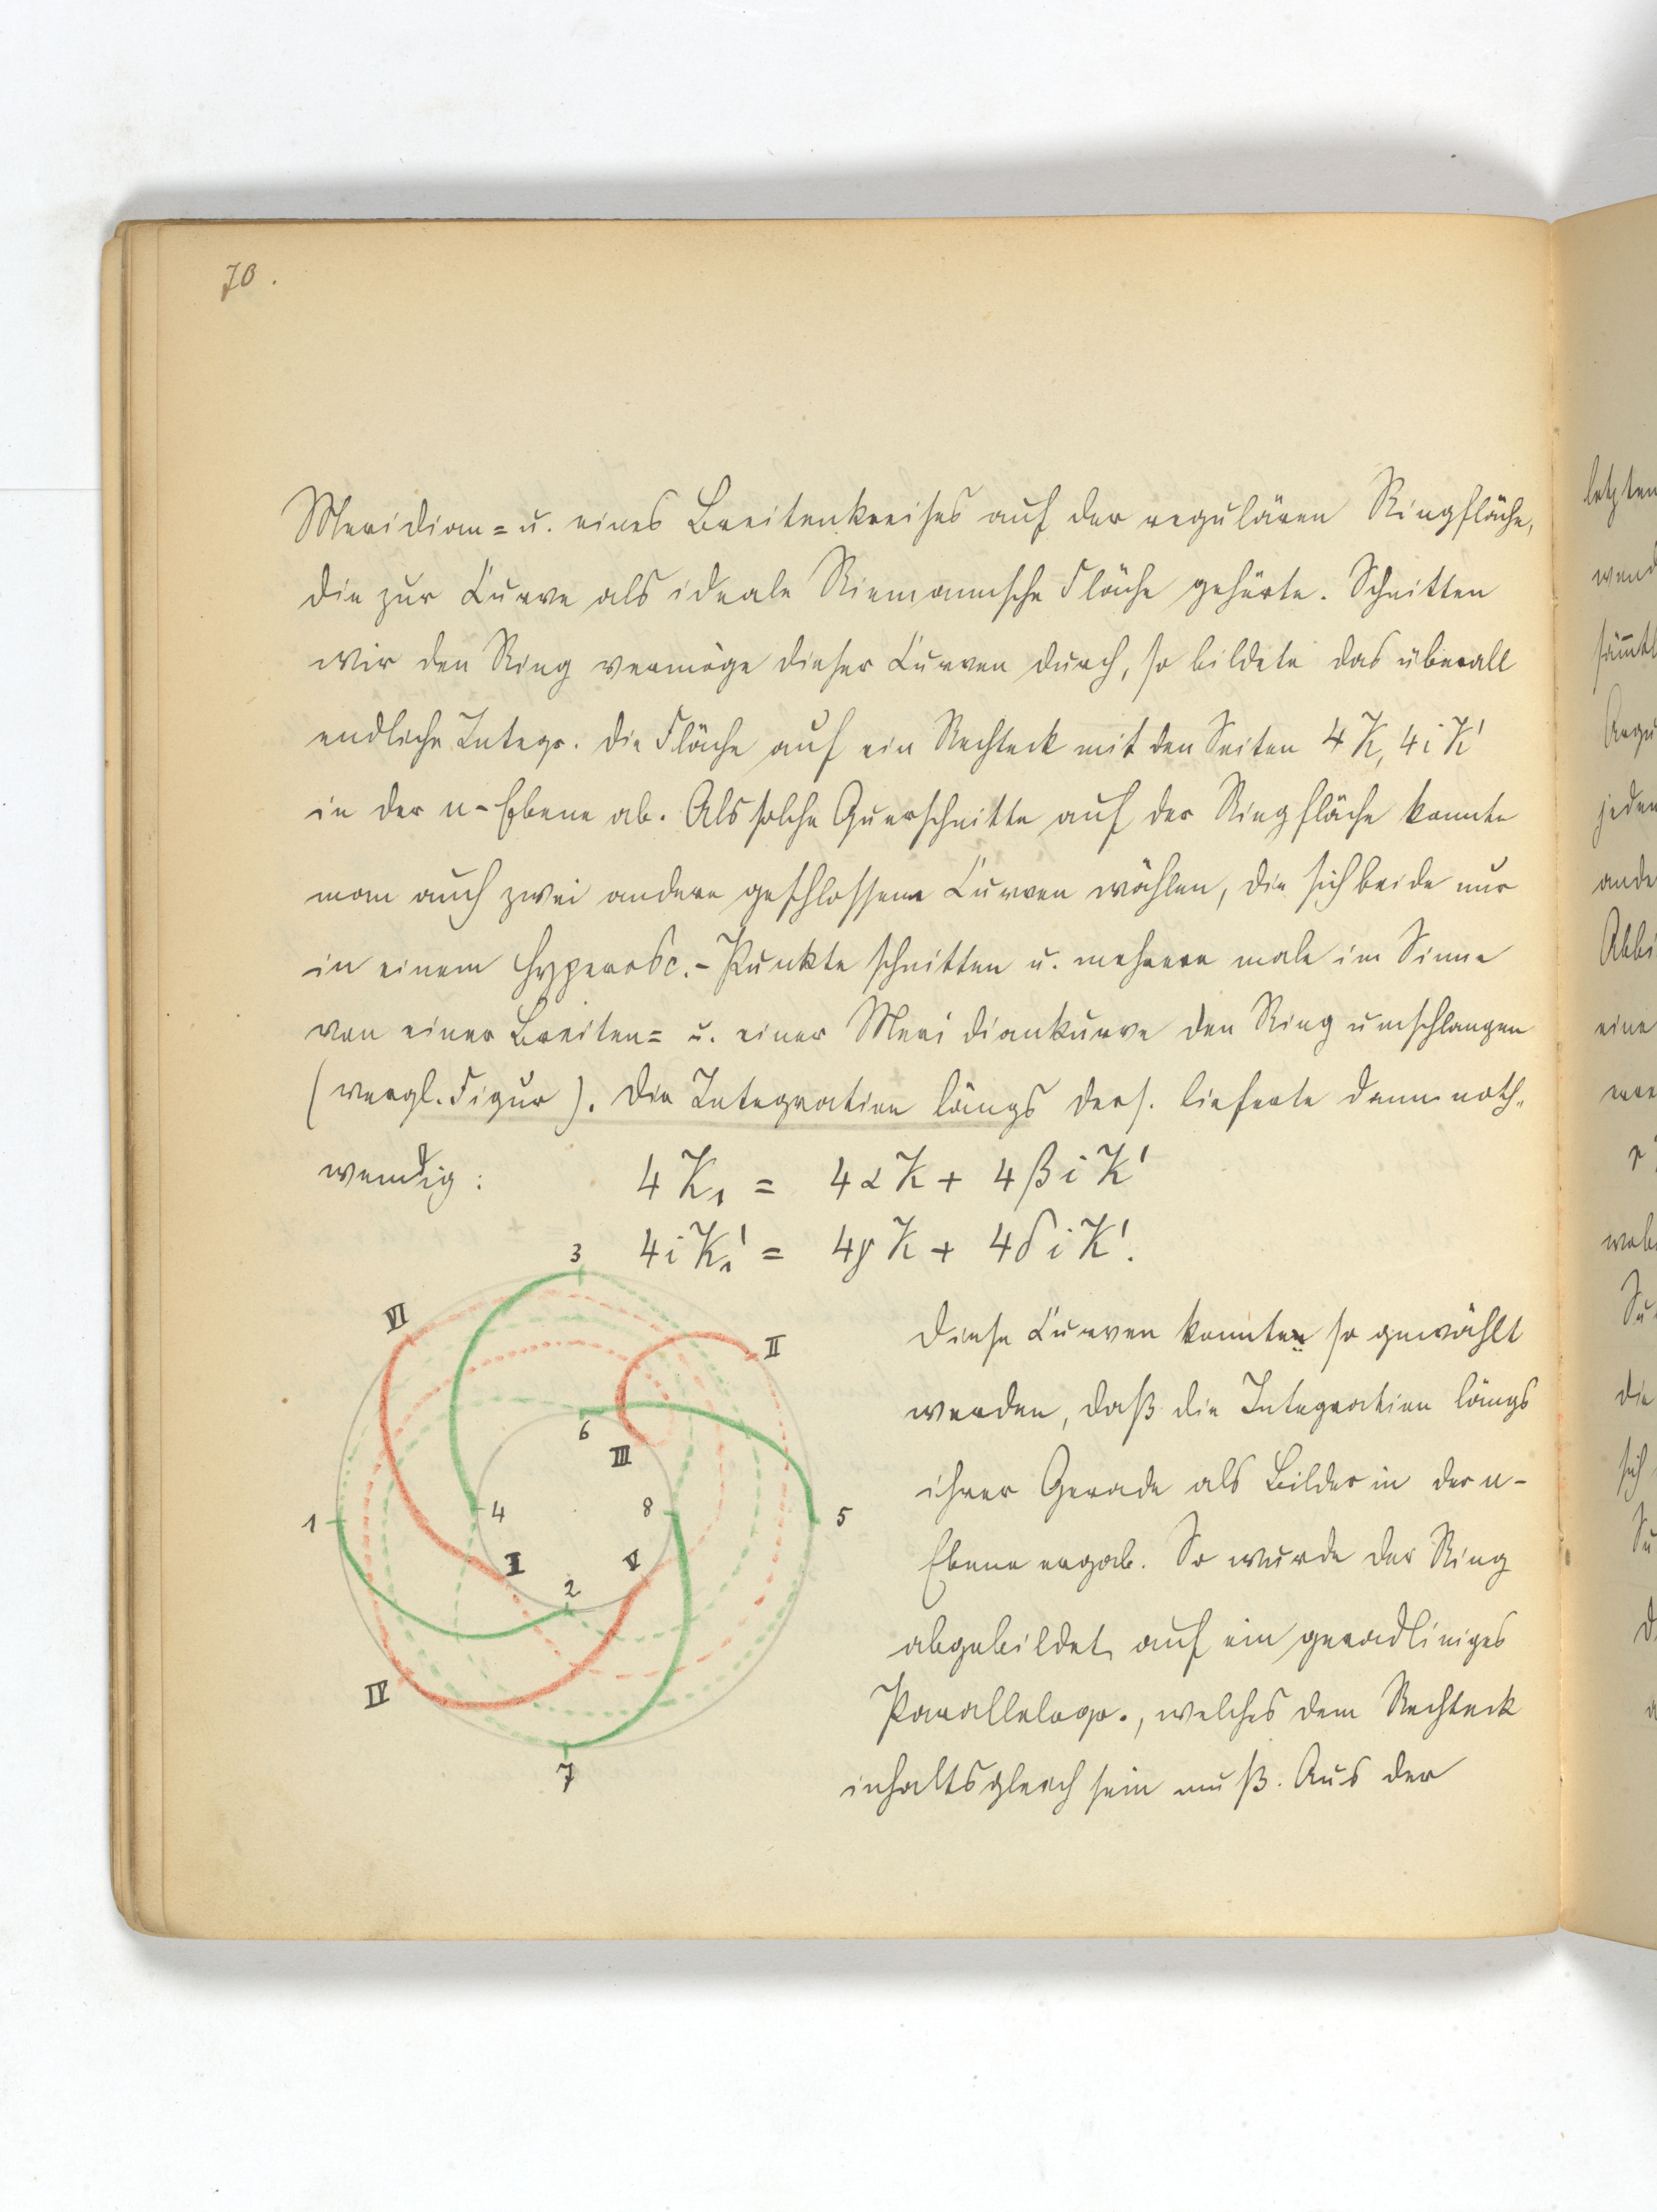 70.
Meridian= u. eines Breitenkreises auf der regulären Ringfläche,
die zur Curve als ideale Riemannsche Fläche gehörte. Schnitten
wir den Ring vermöge dieser Curven durch, so bildete das überall
endliche Integr. die Fläche auf ein Rechteck mit den Seiten 4K, 4iK'
in der u-Ebene ab. Als solche Querschnitte auf der Ringfläche konnte
man auch zwei andere geschlossene Curven wählen, die sich beide nur
in einem Hyperosc.-Punkte schnitten u. mehrere male im Sinne
von einer Breiten= u. einer Meridiankurve den Ring umschlangen
(vergl. Figur). Die Integration längs ders. lieferte dann noth„
wendig:
4K₁ = 4αK + 4βiK'
4iK₁' = 4γK + 4δiK'.
Diese Curven konnten so gewählt
werden, daß die Integration längs
ihrer Gerade als Bilder in der u-
Ebene ergab. So wurde der Ring
abgebildet auf ein geradliniges
Parallelogr., welches dem Rechteck
inhaltsgleich sein muß. Aus der
3
VI
II
6
III
1
4
8
5
I
V
2
IV
7
letzten
wend
sämtl
jeden
ande
Abbi
eine
die
sich